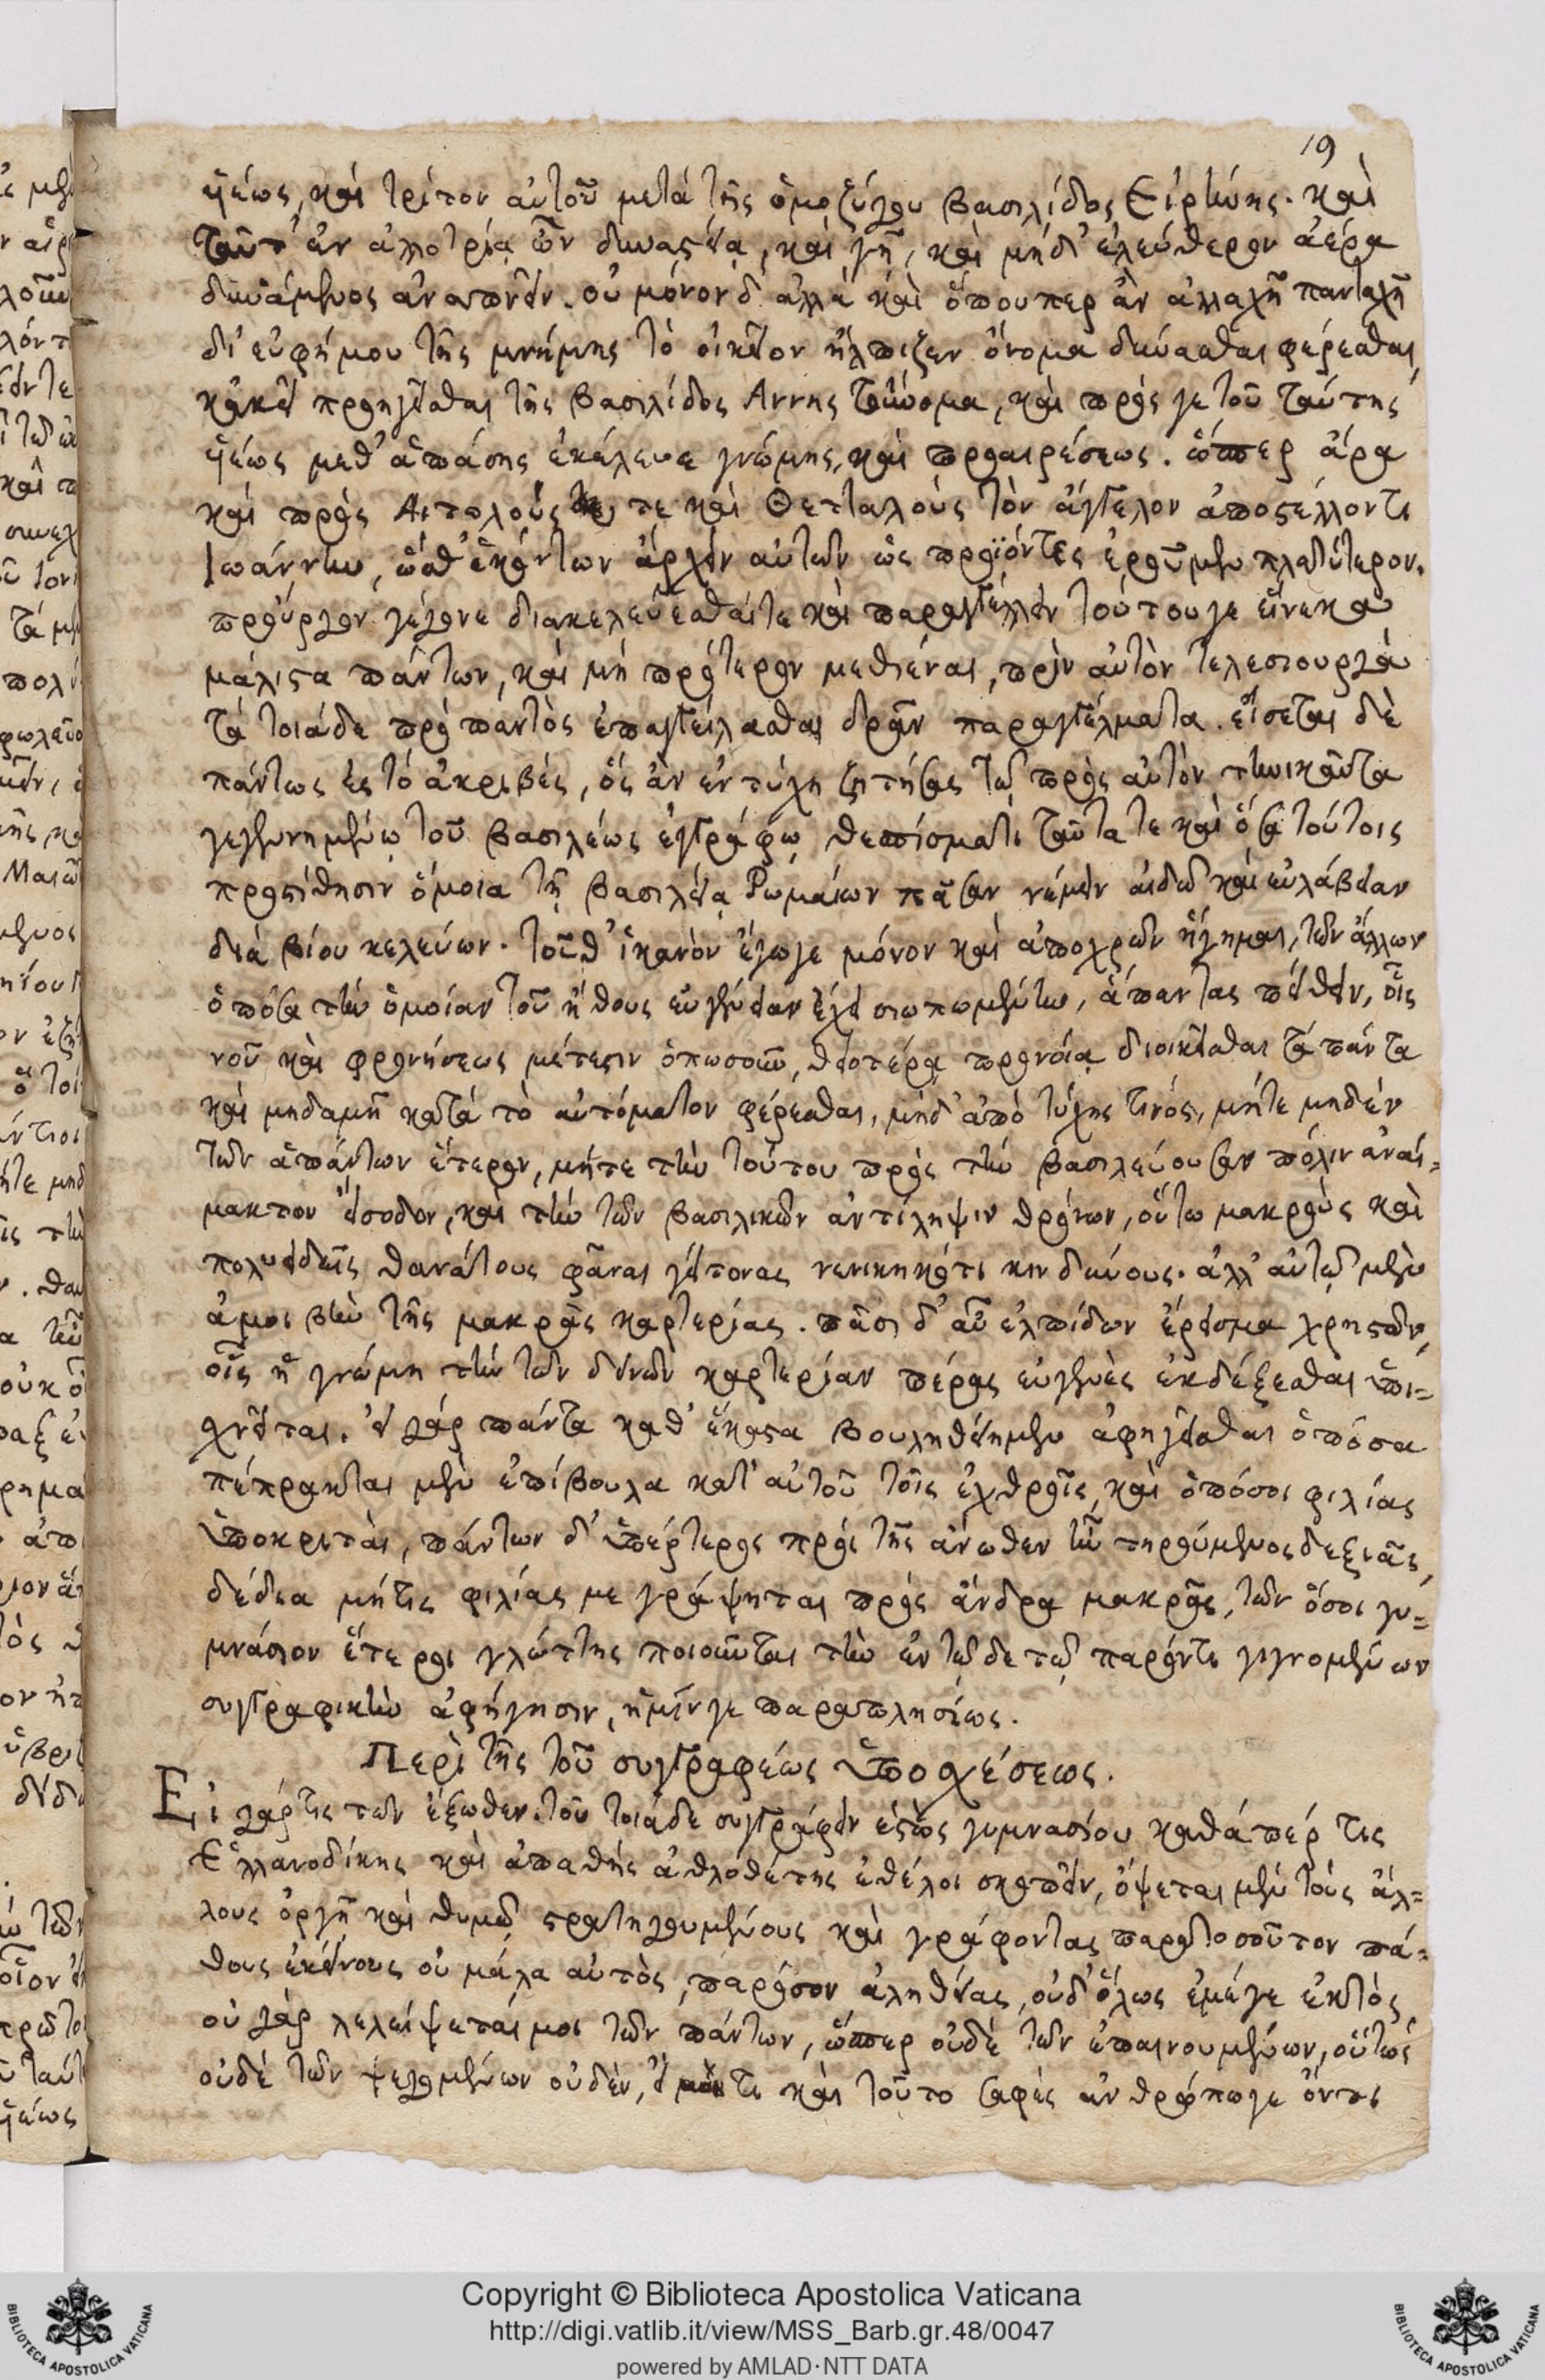 19
ἡέως, καὶ τρίτον αὐτοῦ μετὰ τῆς ὁμοζύγου βασιλίδος Εἰρήνης. καὶ
ταῦτ' ἐν ἀλλοτρίᾳ ὢν δυναστείᾳ, καὶ γῇ, καὶ μηδ' ἐλεύθερον ἀέρα
δυνάμενος ἀναπνεῖν. οὐ μόνον δ' ἀλλὰ καὶ ὅπουπερ ἂν ἀλλαχῆ πανταχῆ
δι' εὐφήμου τῆς μνήμης τὸ οἰκεῖον ἤλπιζεν ὄνομα δύνασθαι φέρεσθαι,
κἀκεῖ προηγεῖσθαι τῆς βασιλίδος Ἄννης τοὔνομα, καὶ πρός γε τοῦ ταύτης
ἡέως μεθ' ἁπάσης ἐκέλευε γνώμης, καὶ προαιρέσεως. ὥσπερ ἄρα
καὶ πρὸς Αιτολούς τε καὶ Θετταλοὺς τὸν ἄγγελον ἀποστέλλοντι
Ἰωάννην, ὥσθ' ἑκόντων ἄρχειν αὐτῶν ὡς προϊόντες ἐροῦμεν πλατύτερον.
προὔργον γέγονε διακελεύεσθαίτε καὶ παραγγέλλειν τούτουγε εἵνεκα
μάλιστα πάντων, καὶ μὴ πρότερον μεθιέναι, πρὶν αὐτὸν τελεσιουργὰ
τὰ τοιάδε πρὸ παντὸς ἐπαγγείλασθαι δρᾶν παραγγέλματα. εἴσεται δὲ
πάντως ἐς τὸ ἀκριβές, ὃς ἂν ἐντύχη ζητήσας τῷ πρὸς αὐτὸν τηνικαῦτα
γεγενημένῳ τοῦ βασιλέως ἐγγράφῳ θεσπίσματι ταῦτα τε καὶ ὅσα τούτοις
προστίθησιν ὅμοια τῇ βασιλείᾳ Ῥωμαίων πᾶσαν νέμειν αἰδῶ καὶ εὐλάβειαν
διὰ βίου κελεύων. τοῦθ' ἱκανὸν ἔγωγε μόνον καὶ ἀποχρῶν ἥγημαι, τῶν ἄλλων
ὁπόσα τὴν ὁμοίαν τοῦ ἤθους εὐγένειαν ἔχει σιωπωμένων, ἅπαντας πείθειν, οἷς
νοῦ καὶ φρονήσεως μέτεστιν ὁπωσοῦν, θειοτέρᾳ προνοίᾳ διοικεῖσθαι τὰ πάντα
καὶ μηδαμῆ κατὰ τὸ αὐτόματον φέρεσθαι, μηδ' ἀπὸ τύχης τινός, μήτε μηδέν
τῶν ἁπάντων ἕτερον, μήτε τὴν τούτου πρὸς τὴν βασιλεύουσαν πόλιν ἀναί-
μακτον εἴσοδον, καὶ τὴν τῶν βασιλικῶν ἀντίληψιν θρόνων, οὕτω μακροὺς καὶ
πολυειδεῖς θανάτους φᾶναι γείτονας νενικηκότι κινδύνους. ἀλλ' αὐτῷ μὲν
ἀμοιβὴν τῆς μακρᾶς καρτερίας. πᾶσι δ' αὖ ἐλπίδων ἔρεισμα χρηστῶν,
οἷς ἡ γνώμη τὴν τῶν δεινῶν καρτερίαν πέρας εὐγενὲς ἐκδέξεσθαι ὑπι-
σχνεῖται. εἰ γὰρ πάντα καθ' ἕκαστα βουληθείημεν ἀφηγεῖσθαι ὁπόσα
πέπρακται μὲν ἐπίβουλα κατ' αὐτοῦ τοῖς ἐχθροῖς, καὶ ὁπόσοι φιλίας
ὑποκριταὶ, πάντων δ' ὑπέρτερος πρὸς τῆς ἄνωθεν ἦν τηρούμενος δεξιᾶς,
δέδια μήτις φιλίας με γράψηται πρὸς ἄνδρα μακρᾶς, τῶν ὅσοι γυ-
μνάσιον ἕτεροι γλώττης ποιοῦνται τὴν ἐν τῷδε τῷ παρόντι γιγνομένων
συγγραφικὴν ἀφήγησιν, ἡμῖν γε παραπλησίως.
Περὶ τῆς τοῦ συγγραφέως ὑποσχέσεως.
Εἰ γάρ τις τῶν ἔξωθεν τοῦ τοιάδε συγγράφειν ἑστὼς γυμνασίου καθάπέρ τις
Ἑλλανοδίκης καὶ ἀπαθὴς ἀθλοθέτης ἐθέλοι σκοπεῖν, ὄψεται μὲν τοὺς ἄλ-
λους ὀργῇ καὶ θυμῷ στρατηγουμένους καὶ γράφοντας παρατοσοῦτον πά-
θους ἐκείνους οὐ μάλα αὐτὸς, παρόσον ἀληθείας, οὐδ' ὅλως ἐμέγε ἐκτὸς
οὐ γὰρ λελείψεταί μοι τῶν πάντων, ὥσπερ οὐδὲ τῶν ἐπαινουμένων, οὕτως
οὐδὲ τῶν ψεγομένων οὐδὲν, εἰ τι καὶ τοῦτο σαφὲς ἀνθρώπωγε ὄντι
Copyright © Biblioteca Apostolica Vaticana
http://digi.vatlib.it/view/MSS_Barb.gr.48/0047
powered by AMLAD·NTT DATA
BIBLIOTECA APOSTOLICA VATICANA
BIBLIOTECA APOSTOLICA VATICANA